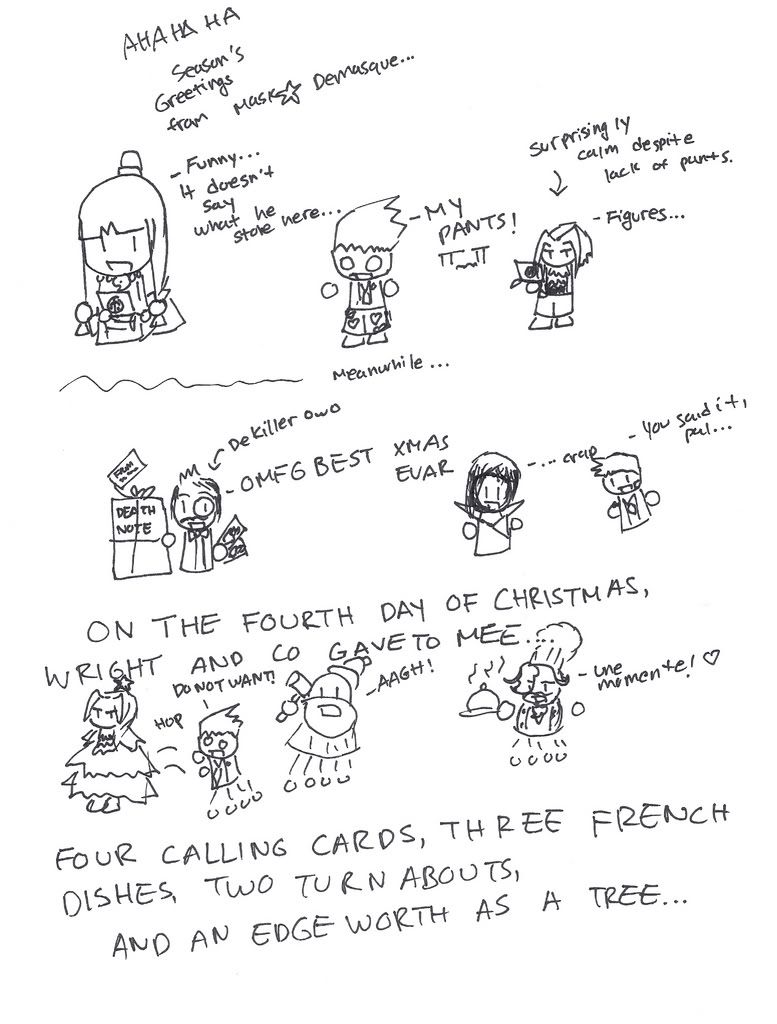 AHA HA HA
Season's
Greetings
from Mask☆ Demasque...
- Funny...
It doesn't
say
what he
stole here...
- MY
PANTS!
π_π
surprisingly
calm despite
lack of pants.
- Figures...
Meanwhile...
DeKiller owo
- OMFG BEST XMAS
EVAR
DEATH
NOTE
- ... crap
- You said it,
pal...
ON THE FOURTH DAY OF CHRISTMAS,
WRIGHT AND CO GAVE TO MEE....
HOP
DO NOT WANT!
- AAGH!
- une
momente! ♡
FOUR CALLING CARDS, THREE FRENCH
DISHES, TWO TURNABOUTS,
AND AN EDGEWORTH AS A TREE...